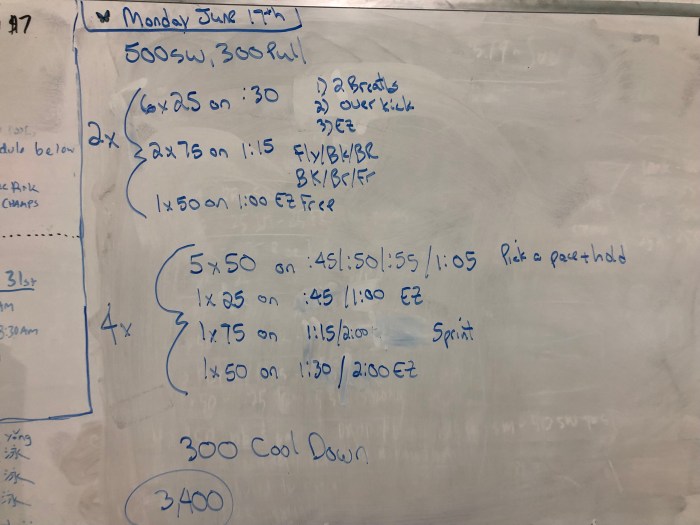 #7
Monday June 17th
500 SW, 300 Pull
2x
6x25 on :30
1) 2 Breaths
2) Over kick
3) EZ
2x75 on 1:15 Fly/BK/BR
BK/Br/Fr
1x50 on 1:00 EZ Free
4x
5x50 on :45/:50/:55/1:05 Pick a pace + hold
1x25 on :45/1:00 EZ
1x75 on 1:15/2:00 Sprint
1x50 on 1:30/2:00 EZ
300 Cool Down
3,400
dule below
Park
CHAMPS
31st
AM
8:30AM
yǒng
泳
泳
泳